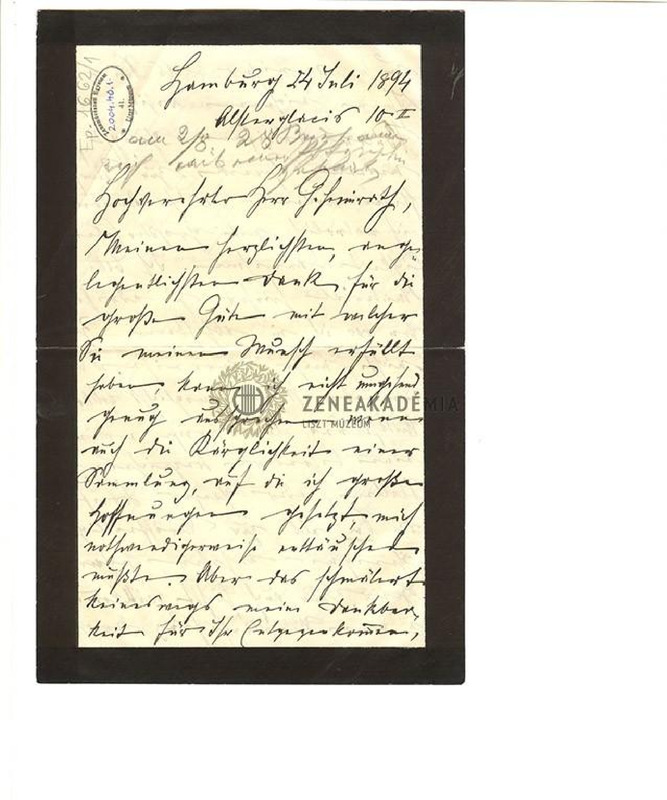 Ep. 1662/1
2004.40.1.
Hamburg 24 Juli 1894
Alsterglacis 10 II
am 2/8 28 Briefe
Hochverehrter Herr Geheimrath,
Meinen herzlichsten, ange-
legentlichsten Dank für die
große Güte mit welcher
Sie meinen Wunsch erfüllt
haben, kann ich nicht umgehend
genug aussprechen wenn
auch die Kärglichkeit einer
Sammlung, auf die ich große
Hoffnungen gesetzt, mich
nothwendigerweise enttäuschen
mußte. Aber das schmälert
keineswegs meine Dankbar-
keit für Ihr Entgegenkommen,
ZENEAKADÉMIA
LISZT MÚZEUM